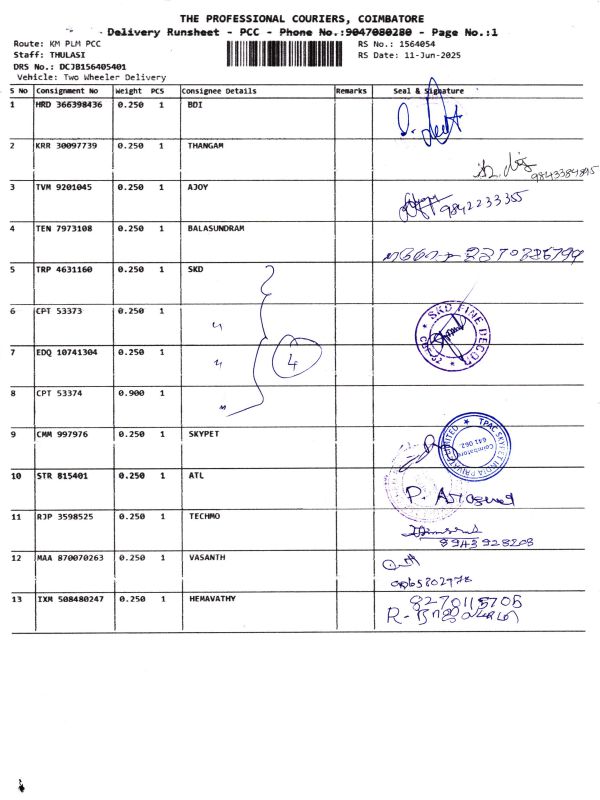 THE PROFESSIONAL COURIERS, COIMBATORE
Delivery Runsheet - PCC - Phone No.:9047080280 - Page No.:1
Route: KM PLM PCC
RS No.: 1564054
Staff: THULASI
RS Date: 11-Jun-2025
DRS No.: DCJB156405401
Vehicle: Two Wheeler Delivery
S No Consignment No Weight PCS Consignee Details Remarks Seal & Signature
1 HRD 366398436 0.250 1 BDI
2 KRR 30097739 0.250 1 THANGAM
9843384895
3 TVM 9201045 0.250 1 AJOY
9842233355
4 TEN 7973108 0.250 1 BALASUNDRAM
5 TRP 4631160 0.250 1 SKD
6 CPT 53373 0.250 1 "
SKD FINE DECOR
7 EDQ 10741304 0.250 1 "
4
8 CPT 53374 0.900 1 "
9 CMM 997976 0.250 1 SKYPET
TPAC SKYPET INDIA PRIVATE LIMITED
Coimbatore
641 062
10 STR 815401 0.250 1 ATL
11 RJP 3598525 0.250 1 TECHMO
9943928203
12 MAA 870070263 0.250 1 VASANTH
13 IXM 508480247 0.250 1 HEMAVATHY
8270115705